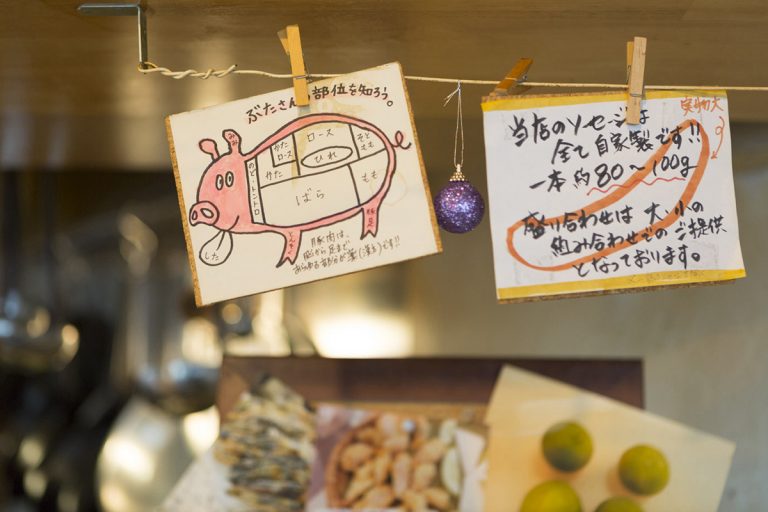 ぶたさんの部位を知ろう。
みみ
かた
ロース
ロース
そと
もも
のど=トントロ
かた
ひれ
ばら
もも
した
とんそく
豚足
豚肉は、
脳から足まで
あらゆる部分が薬(漢方)です!!
実物大
当店のソーセージは
全て自家製です!!
一本約80〜100g
盛り合わせは大・小の
組み合わせでのご提供
となっております。